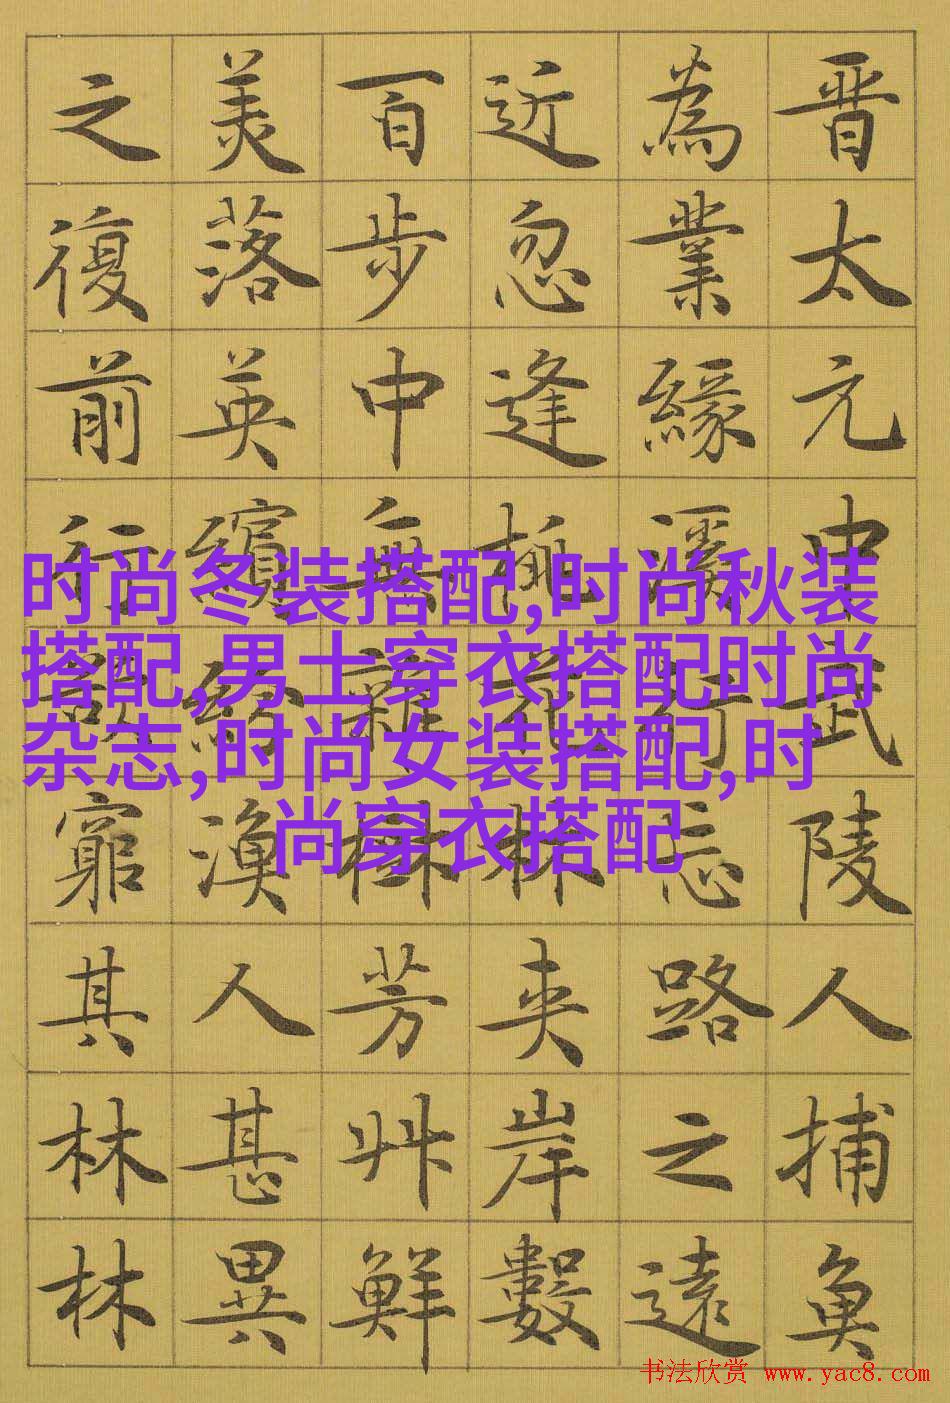 晋太元中武陵人捕魚
為業緣溪行忘路之遠
近忽逢桃花林夾岸數
百步中無雜樹芳艸鮮
美落英繽紛漁人甚異
之復前行欲窮其林林
时尚冬装搭配,时尚秋装
搭配,男士穿衣搭配时尚
杂志,时尚女装搭配,时
尚穿衣搭配
书法欣赏 www.yac8.com